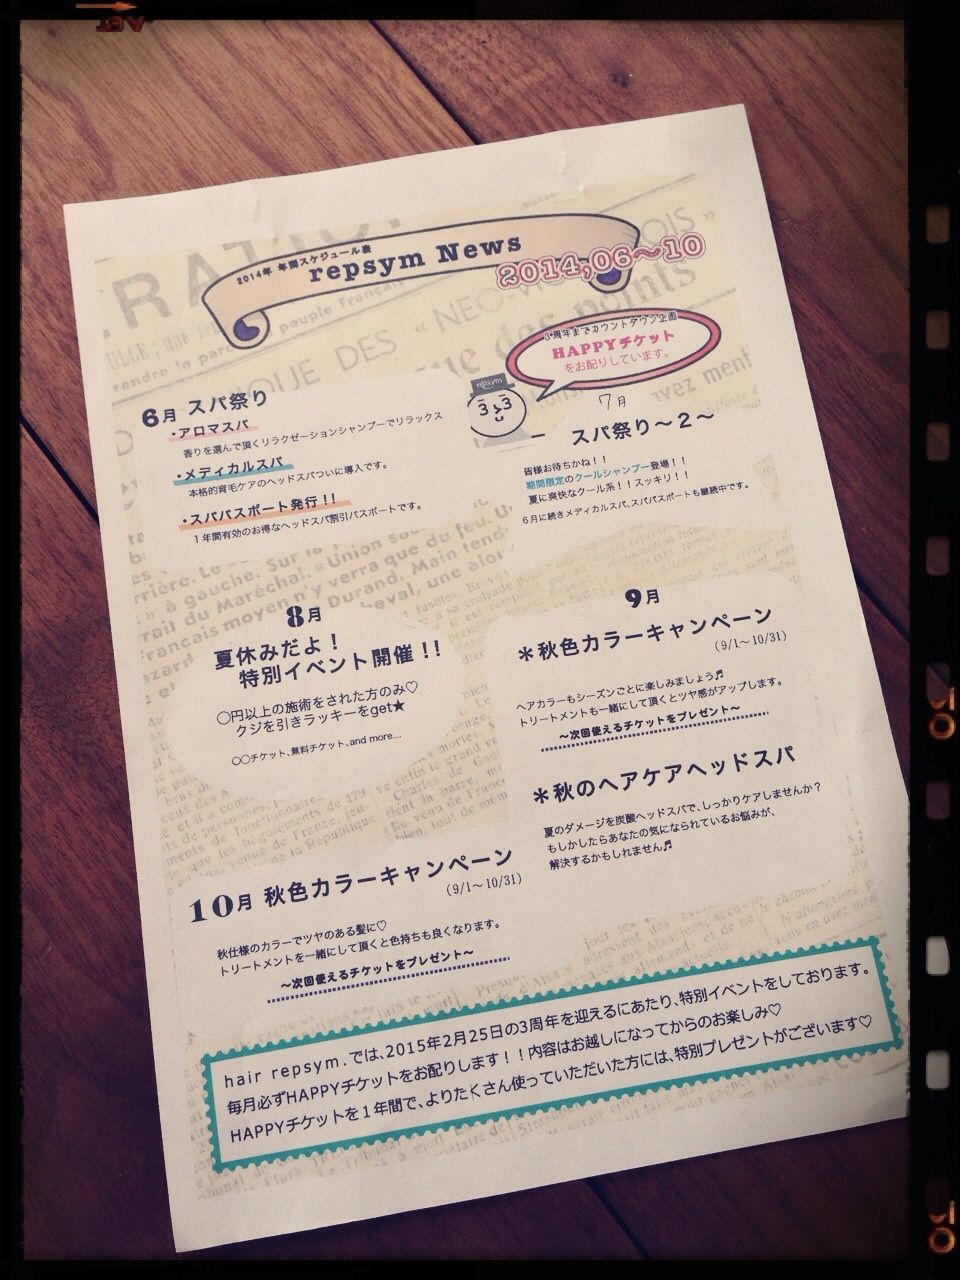 2014年 年間スケジュール表
repsym News
2014,06〜10
3周年までカウントダウン企画
HAPPYチケット
をお配りしています。
repsym
6月 スパ祭り
・アロマスパ
香りを選んで頂くリラクゼーションシャンプーでリラックス
・メディカルスパ
本格的育毛ケアのヘッドスパついに導入です。
・スパパスポート発行!!
1年間有効のお得なヘッドスパ割引パスポートです。
7月
スパ祭り〜2〜
皆様お待ちかね!!
期間限定のクールシャンプー登場!!
夏に爽快なクール系!!スッキリ!!
6月に続きメディカルスパ、スパパスポートも継続中です。
8月
夏休みだよ!
特別イベント開催!!
◯円以上の施術をされた方のみ♡
クジを引きラッキーをget★
◯◯チケット、無料チケット、and more....
9月
＊秋色カラーキャンペーン
(9/1〜10/31)
ヘアカラーもシーズンごとに楽しみましょう♬
トリートメントも一緒にして頂くとツヤ感がアップします。
〜次回使えるチケットをプレゼント〜
＊秋のヘアケアヘッドスパ
夏のダメージを炭酸ヘッドスパで、しっかりケアしませんか?
もしかしたらあなたの気になられているお悩みが、
解決するかもしれません♬
10月 秋色カラーキャンペーン
(9/1〜10/31)
秋仕様のカラーでツヤのある髪に♡
トリートメントを一緒にして頂くと色持ちも良くなります。
〜次回使えるチケットをプレゼント〜
hair repsym.では、2015年2月25日の3周年を迎えるにあたり、特別イベントをしております。
毎月必ずHAPPYチケットをお配りします!!内容はお越しになってからのお楽しみ♡
HAPPYチケットを1年間で、よりたくさん使っていただいた方には、特別プレゼントがございます♡